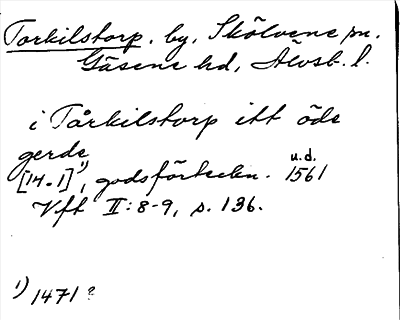 Torkilstorp. by, Skölvene sn.
Gäsene hd, Älvsb. l.
i Tårkilstorp itt öde
gerde
u.d.
[14-1]¹⁾, godsförteckn. 1561
Vft II:8-9, s. 136.
¹⁾ 1471?